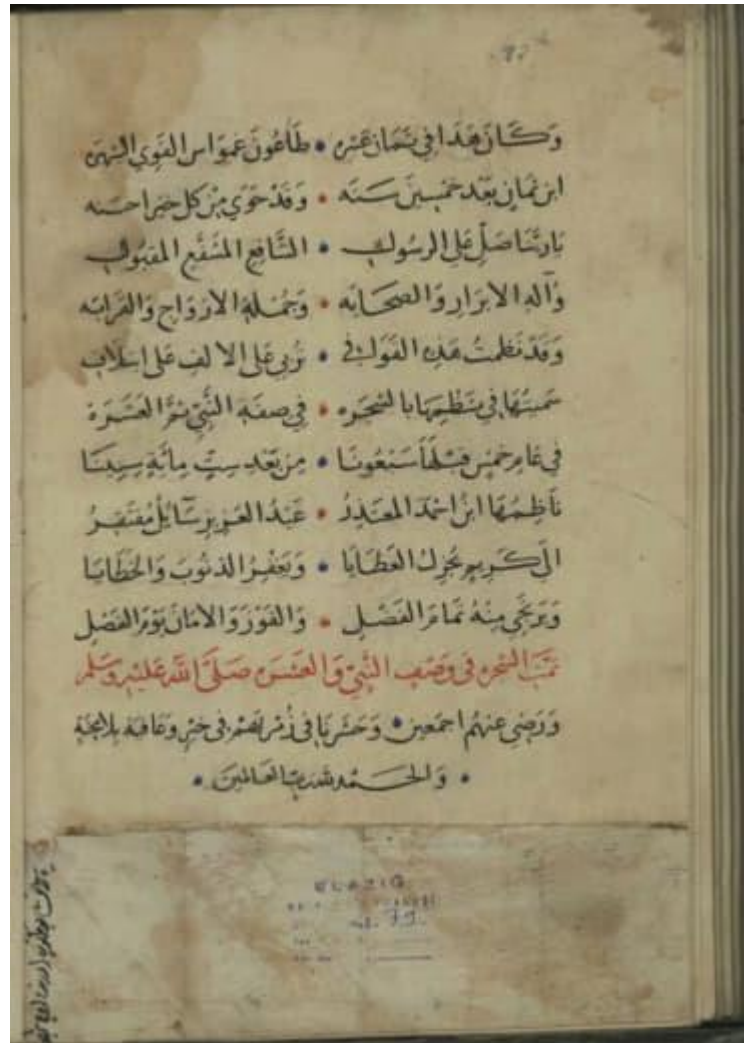 وَكَانَ هَذَا فِي ثَمَانِ عَشْرَه • طَاعُونُ عَمَوَاسِ القَوِي الشُهْرَه
ابن ثمانٍ بَعْدَ خَمْسِينَ سَنَه • وَقَدْ حَوَى مِنْ كل خير احسَنه
يَا رَبَّنَا صَلِّ عَلى الرسُولِ • الشَّافِعِ المُشَفَّعِ المقبُولِ
وَآلهِ الابرَارِ وَالصحَابَه • وَجُمْلَةِ الازوَاجِ وَالقَرَابَه
وَقَدْ نَظمتُ هَذِهِ القَوَافِي • تُربِي عَلى الالفِ عَلى ائتلافِ
سَمَّيتُهَا فِي نَظْمِهَا بالشجَرَه • فِي صِفَةِ النَّبِيِّ ثُمَّ العَشَرَة
فِي عَامِ خَمْسٍ قَبْلَهَا سَبْعُونَا • مِن بَعْدِ سِتِّ مِائَةٍ سِنِينَا
نَاظِمُهَا ابنُ احْمَدَ المعتَذِرُ • عَبْدُ العَزِيزِ سَائِلٌ مُفتَقِرُ
الَى كَرِيمٍ يُجْزِلُ العَطَايَا • وَيَغْفِرُ الذنُوبَ وَالخَطَايَا
وَيَرتَجِي مِنْهُ تَمَامَ الفَضْلِ • وَالفَوْزَ وَالامَانَ يَوْمَ الفَصْلِ
تمت الشجره فِي وَصْفِ النَّبِيّ وَالعَشره صَلَّى اللَّه عَلَيْهِ وَسَلم
وَرَضِي عنهُم اجمَعِين • وَحَشرنَا فِي زُمْرَتهم فِي خير وَعَافية بلا محنة
• وَالحَمْد لله رَب العَالمين •
ELAZIĞ